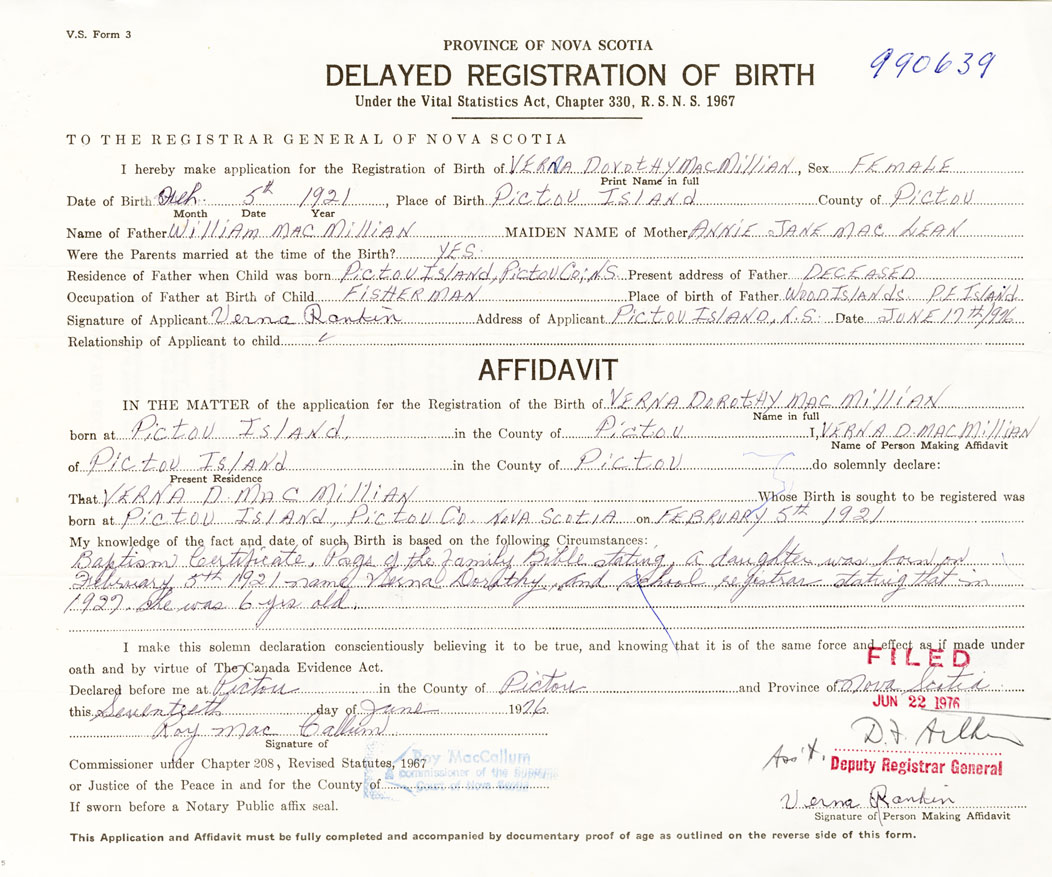 V.S. Form 3
PROVINCE OF NOVA SCOTIA
990639
DELAYED REGISTRATION OF BIRTH
Under the Vital Statistics Act, Chapter 330, R.S.N.S. 1967
TO THE REGISTRAR GENERAL OF NOVA SCOTIA
I hereby make application for the Registration of Birth of VERNA DOROTHY MACMILLIAN, Sex FEMALE
Print Name in full
Date of Birth Feb. 5th 1921, Place of Birth PICTOU ISLAND County of PICTOU
Month Date Year
Name of Father WILLIAM MAC MILLIAN MAIDEN NAME of Mother ANNIE JANE MAC LEAN
Were the Parents married at the time of the Birth? YES.
Residence of Father when Child was born PICTOU ISLAND, PICTOU CO; N.S. Present address of Father DECEASED
Occupation of Father at Birth of Child FISHERMAN Place of birth of Father WOOD ISLANDS P.E ISLAND
Signature of Applicant Verna Rankin Address of Applicant PICTOU ISLAND, N.S. Date JUNE 17th/976
Relationship of Applicant to child
AFFIDAVIT
IN THE MATTER of the application for the Registration of the Birth of VERNA DOROTHY MAC MILLIAN
Name in full
born at PICTOU ISLAND, in the County of PICTOU I, VERNA D. MACMILLIAN
Name of Person Making Affidavit
of PICTOU ISLAND in the County of PICTOU do solemnly declare:
Present Residence
That VERNA D. MAC MILLIAN Whose Birth is sought to be registered was
born at PICTOU ISLAND, PICTOU CO. NOVA SCOTIA on FEBRUARY 5th 1921
My knowledge of the fact and date of such Birth is based on the following Circumstances:
Baptism Certificate, Page of the family Bible stating, a daughter was born on
February 5th 1921 name Verna Dorothy, and school registrar stating that in
1927. she was 6 yrs old.
I make this solemn declaration conscientiously believing it to be true, and knowing that it is of the same force and effect as if made under
oath and by virtue of The Canada Evidence Act.
FILED
Declared before me at Pictou in the County of Pictou and Province of Nova Scotia
JUN 22 1976
this Seventeeth day of June 1976
Roy Mac Callum
Signature of
Commissioner under Chapter 208, Revised Statutes, 1967
Roy MacCallum
a commissioner of the Supreme
Court of Nova Scotia
Ass't. Deputy Registrar General
or Justice of the Peace in and for the County of
If sworn before a Notary Public affix seal.
Verna Rankin
Signature of Person Making Affidavit
This Application and Affidavit must be fully completed and accompanied by documentary proof of age as outlined on the reverse side of this form.